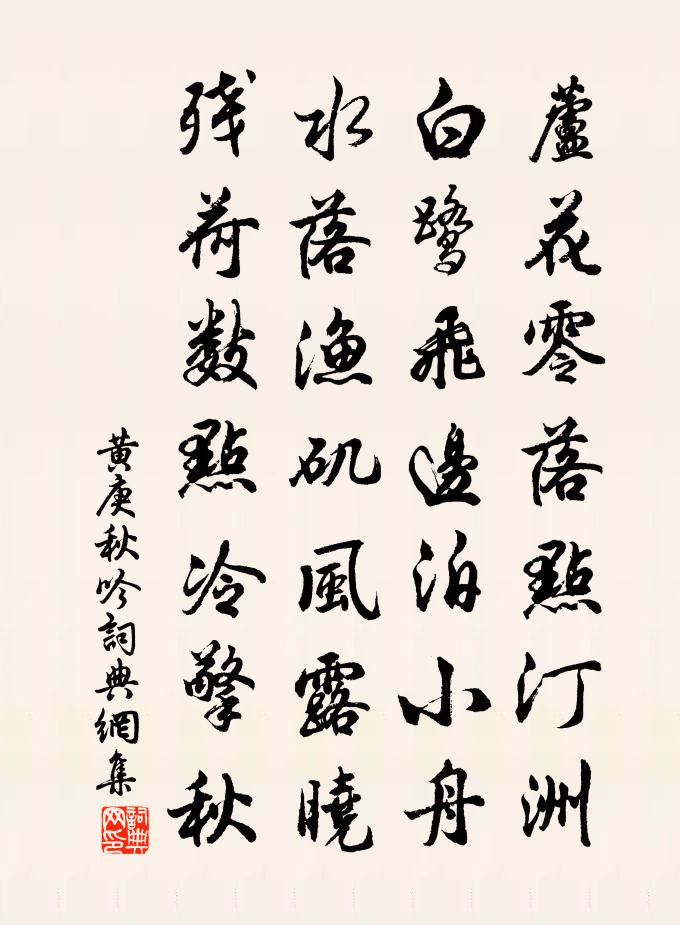 蘆花零落點汀洲
白鷺飛邊泊小舟
水落漁矶風露曉
残荷數點冷擎秋
黄庚秋吟詞典網集
詞典
网印